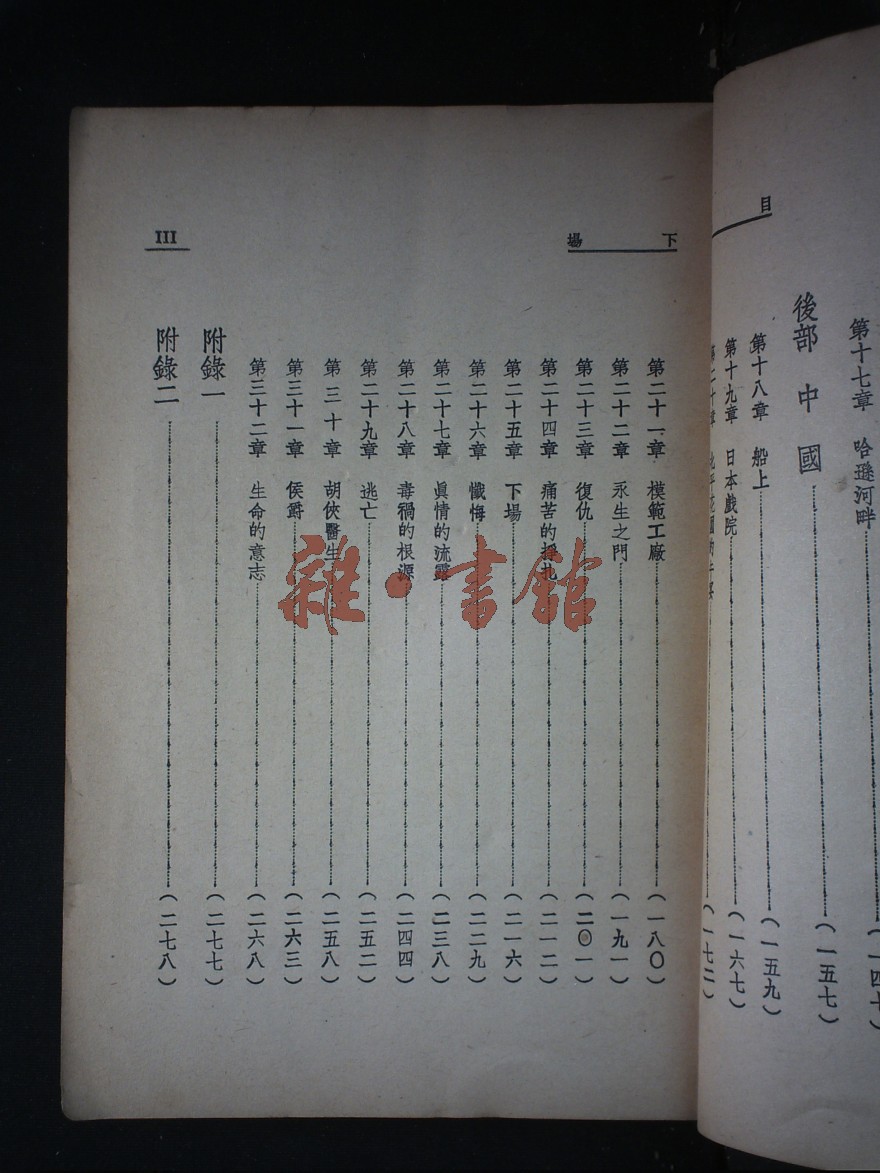 目
第十七章 哈遜河畔 (一四七)
後部 中國 (一五七)
第十八章 船上 (一五九)
第十九章 日本戲院 (一六七)
第二十章 (一七二)
下場
第二十一章 模範工廠 (一八〇)
第二十二章 永生之門 (一九一)
第二十三章 復仇 (二〇一)
第二十四章 痛苦的掙扎 (二一二)
第二十五章 下場 (二一六)
第二十六章 懺悔 (二二九)
第二十七章 眞情的流露 (二三八)
第二十八章 毒禍的根源 (二四四)
第二十九章 逃亡 (二五二)
第三十章 胡俠醫生 (二五八)
第三十一章 侯爵 (二六三)
第三十二章 生命的意志 (二六八)
附錄一 (二七七)
附錄二 (二七八)
III
雜·書館